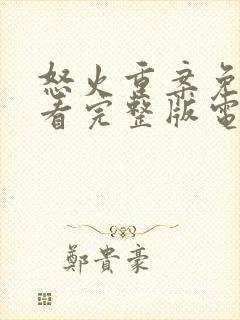 怒火重案免
看完整版電
鄭貴豪